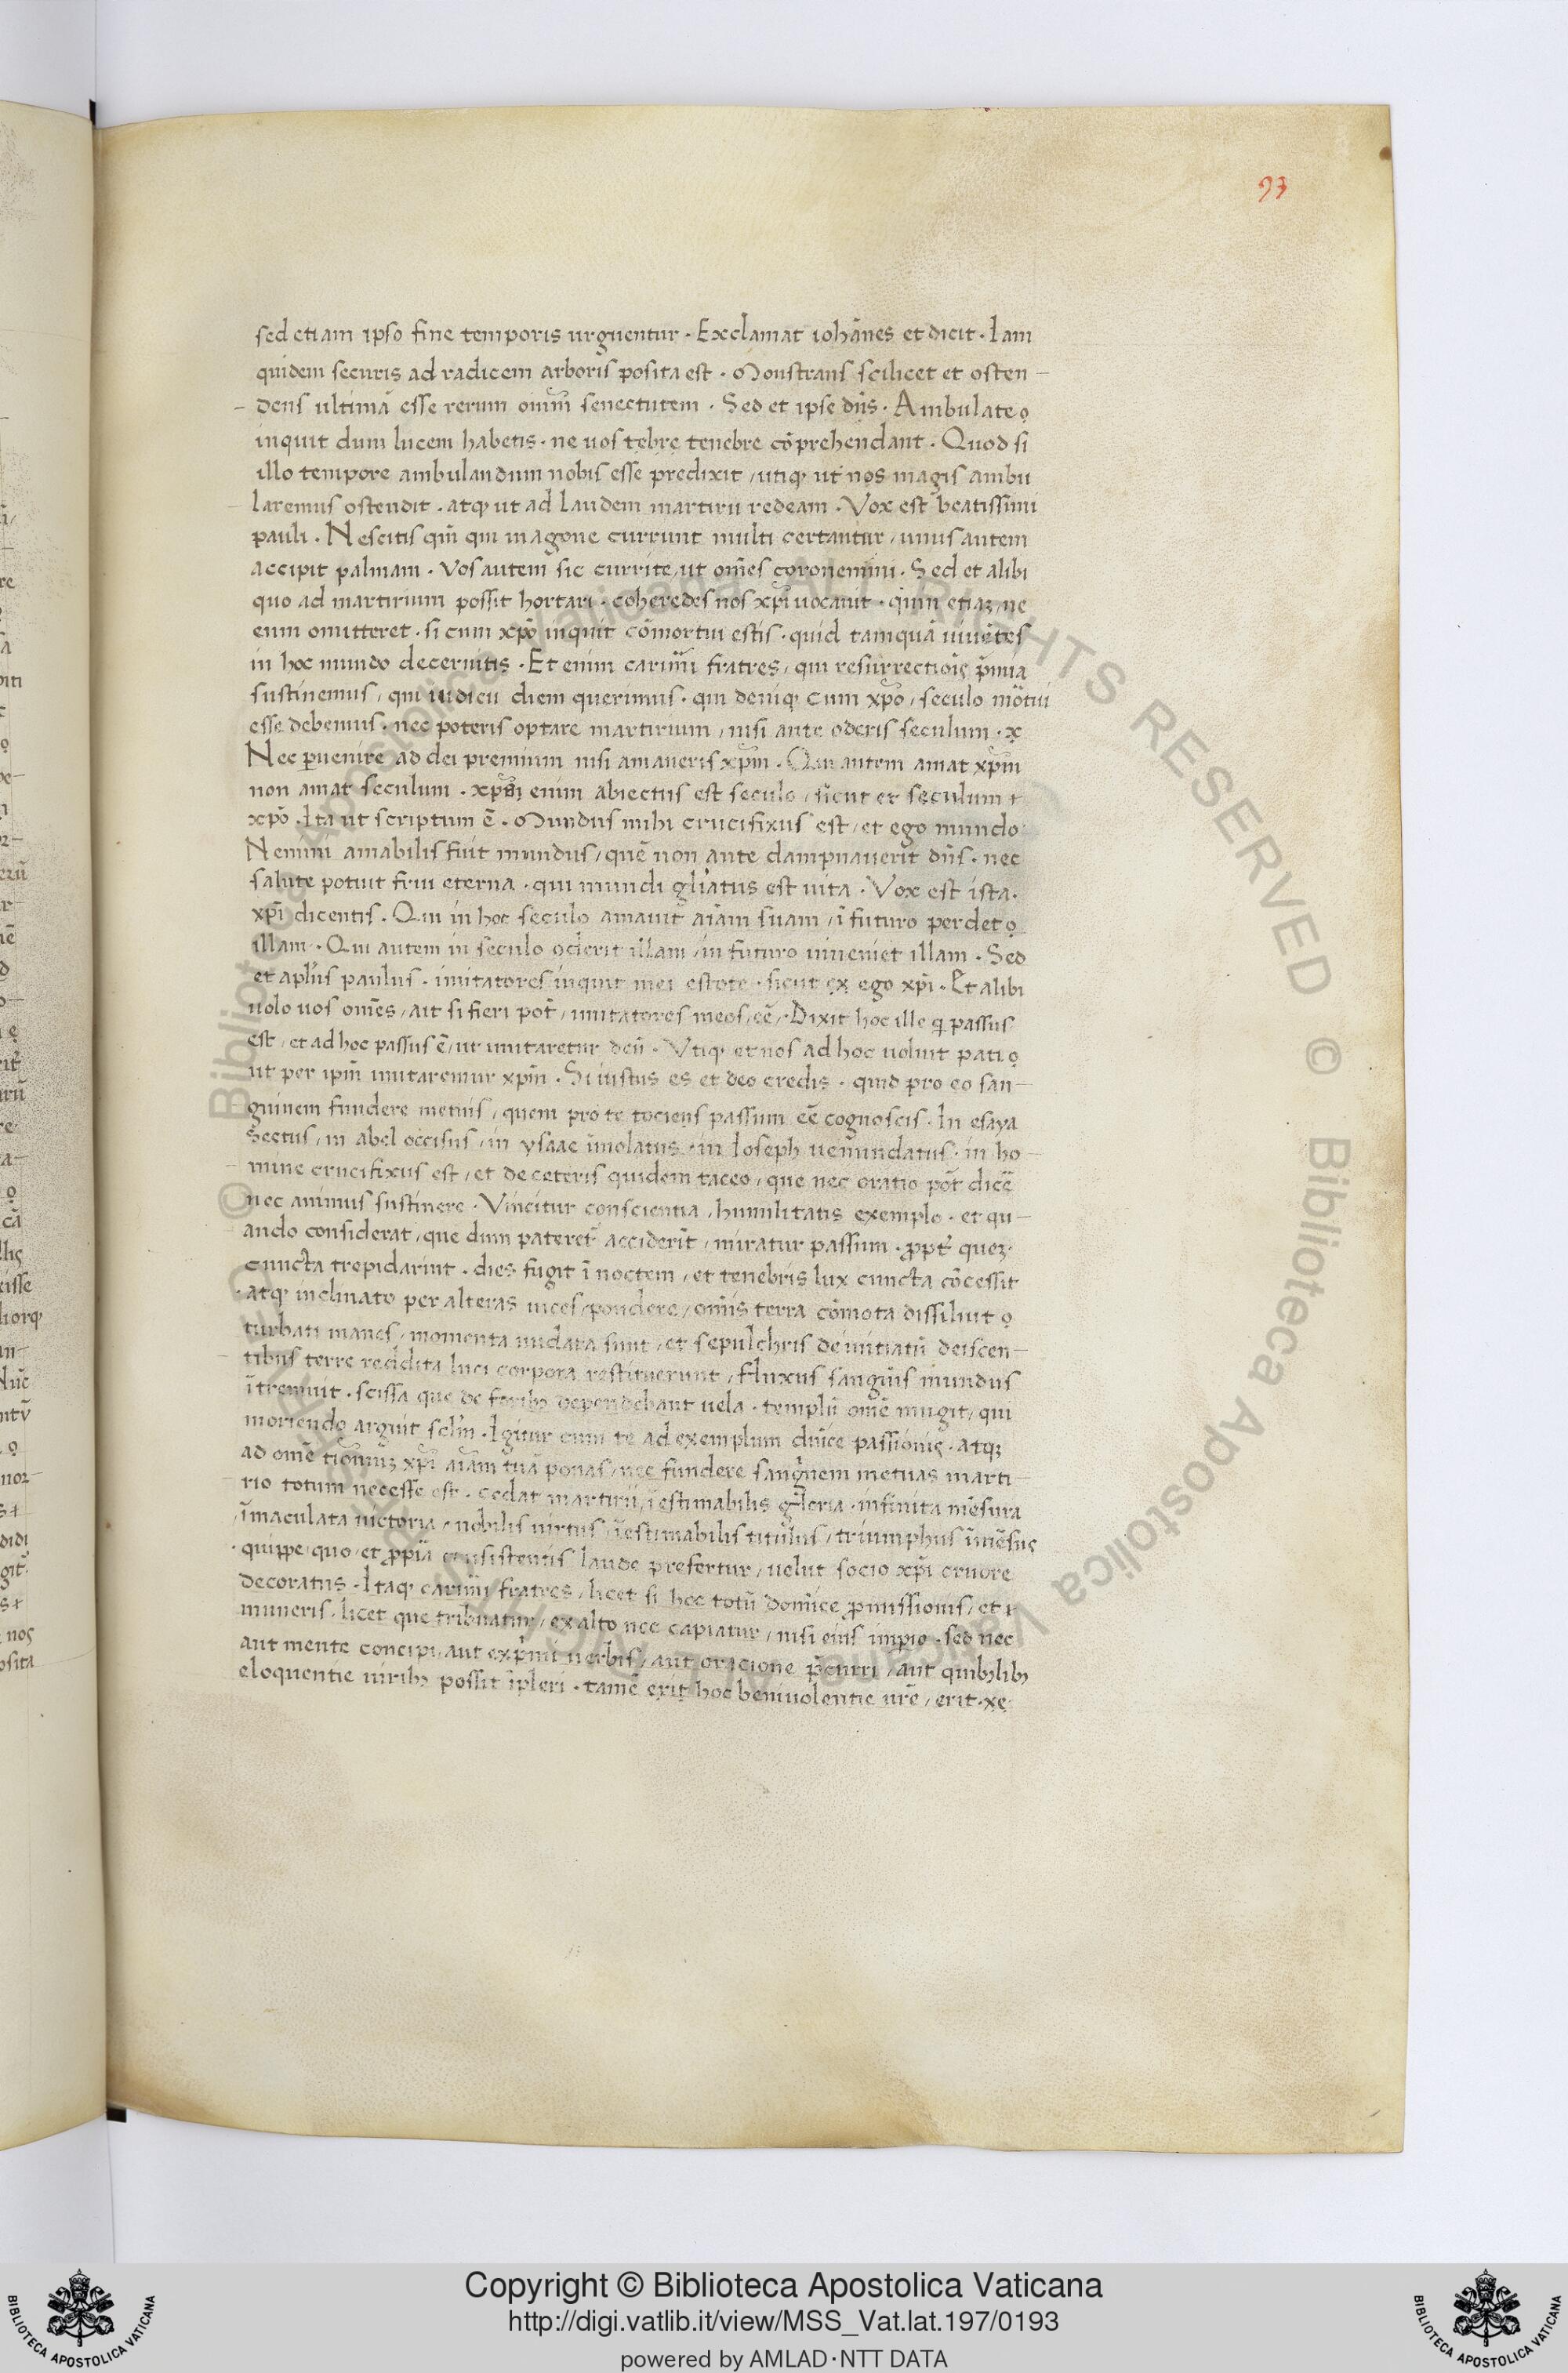 93
sed etiam ipso fine temporis urguentur · Exclamat iohānes et dicit · Iam
quidem securis ad radicem arboris posita est · Monstrans scilicet et osten–
dens ultimā esse rerum omnīū senectutem · Sed et ipse dn̄s · Ambulate
inquit dum lucem habetis · ne uos tebre tenebre cōprehendant · Quod si
illo tempore ambulandum nobis esse predixit / utiqꝫ ut nos magis ambu
laremus ostendit · atqꝫ ut ad laudem martirii redeam · Vox est beatissimi
pauli · Nescitis qm̄ qui in agone currunt multi certantur / unus autem
accipit palmam · Vos autem sic currite / ut om̄es coronemini · Sed et alibi
quo ad martirium possit hortari · coheredes nos xp̄i uocauit · quin etiaꝫ / ne
eum omitteret · si cum xp̄o inquit cōmortui estis · quid tamquā uiuētes
in hoc mundo decernitis · Et enim carim̄i fratres / qui resurrectiōis p̄mia
sustinemus / qui iudicii diem querimus · qui deniqꝫ cum xp̄o / seculo mōtui
esse debemus · nec poteris optare martirium / nisi ante oderis seculum ·
Nec ꝑuenire ad dei premium nisi amaueris xp̄m · Qui autem amat xp̄m
non amat seculum · enim abiectus est seculo / sicut et seculum
xp̄o · Ita ut scriptum ē · Mundus mihi crucifixus est / et ego mundo
Nemini amabilis fuit mundus / quē non ante dampnauerit dn̄s · nec
salute potuit frui eterna · qui mundi gl̄iatus est uita · Vox est ista ·
xp̄i dicentis · Qui in hoc seculo amauit aīam suam / ī futuro perdet
illam · Qui autem in seculo oderit illam / in futuro inueniet illam · Sed
et apl̄us paulus · imitatores inquit mei estote · sicut ex ego xp̄i · Et alibi
uolo uos om̄es / ait si fieri pot̄ / imitatores meos / eē / Dixit hoc ille q̄ passus
est / et ad hoc passus ē / ut imitaretur deū · Vtiqꝫ et nos ad hoc uoluit pati
ut per ip̄m imitaremur xp̄m · Si iustus es et deo credis · quid pro eo san–
guinem fundere metuis / quem pro te tociens passum eē cognoscis · In esaya
sectus / in abel occisus / in ysaac īmolatus · in Ioseph uenundatus · in ho
mine crucifixus est / et de ceteris quidem taceo / que nec oratio pot̄ dicē
nec animus sustinere · Vincitur conscientia / humilitatis exemplo · et qu–
ando considerat / que dum pateret̄ acciderīt / miratur passum · ꝓpt̄ queꝫ
cuncta trepidarint · dies fugit ī noctem / et tenebris lux cuncta cōcessit
atqꝫ inclinato per alteras uices / pondere / om̄is terra cōmota dissiluit
turbati manes / momenta nudata sunt / et sepulchris deiscen–
tibus terre reddita luci corpora restituerunt / fluxus sangu̅is mundus
ītremuit · scissa que de foribꝫ dependebant uela · templū omē mugit / qui
moriendo arguit scl̄m · Igitur cum te ad exemplum dn̄ice passionis · atqꝫ
ad omē xp̄i aīam tuā ponas / nec fundere sangnem metuas marti
rio totum necesse est · cedat martirii / īestimabilis gloria · infinita mēsura
īmaculata uictoria / nobilis uirtus / īestimabilis titulus / triumphus īmēsus
quippe quo et ꝓpria consistentis laude prefertur / uelut socio xp̄i cruore
decoratus · Itaqꝫ carim̄i fratres / licet si hoc totū domīce ꝓmissionis / et
muneris / licet que tribuatur / ex alto nec capiatur / nisi eius imperio · sed nec
aut mente concipi / aut exprimi uerbis / aut oracione / aut quibꝫlibꝫ
eloquentie uiribꝫ possit īpleri · tamē erit hoc beniuolentie ur̄e / erit
Copyright © Biblioteca Apostolica Vaticana
http://digi.vatlib.it/view/MSS_Vat.lat.197/0193
powered by AMLAD·NTT DATA